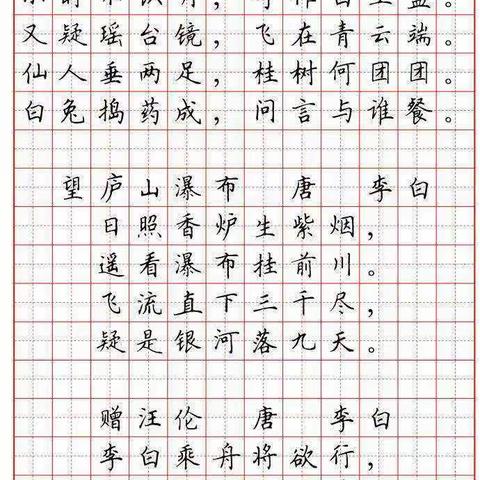 又疑瑶台镜，飞在青云端。
仙人垂两足，桂树何团团。
白兔捣药成，问言与谁餐。
望庐山瀑布 唐 李白
日照香炉生紫烟，
遥看瀑布挂前川。
飞流直下三千尽，
疑是银河落九天。
赠汪伦 唐 李白
李白乘舟将欲行，